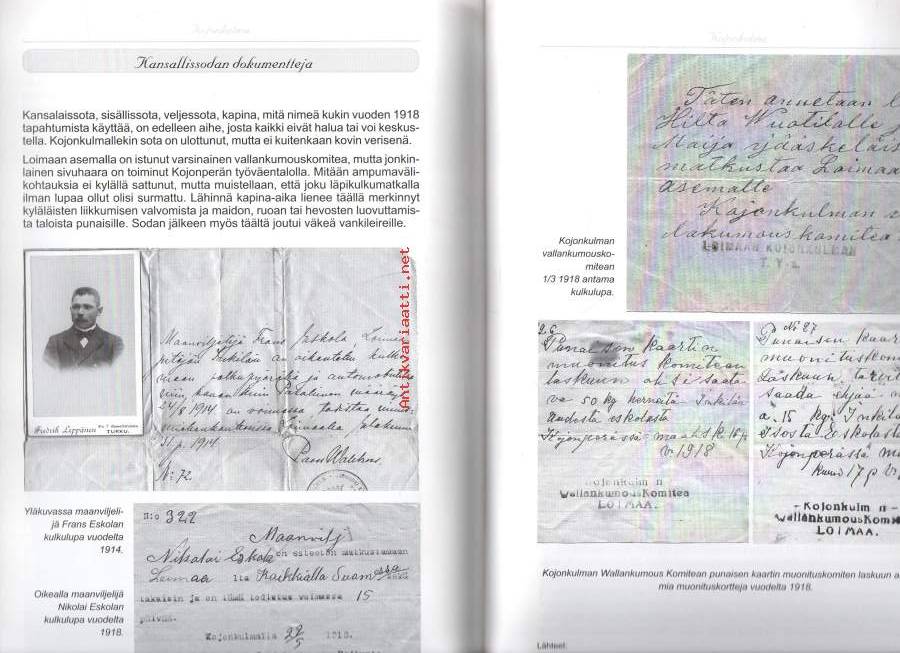 Kojonkulma
Kansallissodan dokumentteja
Kansalaissota, sisällissota, veljessota, kapina, mitä nimeä kukin vuoden 1918
tapahtumista käyttää, on edelleen aihe, josta kaikki eivät halua tai voi keskus-
tella. Kojonkulmallekin sota on ulottunut, mutta ei kuitenkaan kovin verisenä.
Loimaan asemalla on istunut varsinainen vallankumouskomitea, mutta jonkin-
lainen sivuhaara on toiminut Kojonperän työväentalolla. Mitään ampumaväli-
kohtauksia ei kylällä sattunut, mutta muistellaan, että joku läpikulkumatkalla
ilman lupaa ollut olisi surmattu. Lähinnä kapina-aika lienee täällä merkinnyt
kyläläisten liikkumisen valvomista ja maidon, ruoan tai hevosten luovuttamis-
ta taloista punaisille. Sodan jälkeen myös täältä joutui väkeä vankileireille.
Fredrik Leppänen
TURKU.
Maanviljelijä Frans Eskola
24/8 1914 on
31/8 1914
N: 72.
Antikvariaatti.net
Yläkuvassa maanviljeli-
jä Frans Eskolan
kulkulupa vuodelta
1914.
Oikealla maanviljelijä
Nikolai Eskolan
kulkulupa vuodelta
1918.
N:o 322
Maanvilj
Nikolai Eskola on esteetön matkustamaan
Loimaa lta Kaikkialla Suomessa
takaisin ja on tämä todistus voimassa 15
päivää.
Kojonkulmalla 29/5 1918.
Kojonkulma
Täten annetaan
Hilta Wuotilalle
Maija
matkustaa Loimaa
asemalle
Kojonkulman
lakumous komitea
LOIMAAN KOJONKULMAN
T. Y.
Kojonkulman
vallankumousko-
mitean
1/3 1918 antama
kulkulupa.
26
Punaisen kaartin
muonitus komitean
laskuun olisi saata
va 50 kg herneitä Inkilän
Uudesta eskolasta
Kojonperässä maalisk 15 p
v. 1918
Kojonkulm n
WallankumousKomitea
LOIMAA.
No 27
Punaisen kaar
muonituskom
Laskuun,
saada
a. 15 kg. Inkil
Isosta Eskolasta
Kojonperässä ma
kuun 17 p v
-Kojonkulm n-
WallankumousKomi
LOIMAA.
Kojonkulman Wallankumous Komitean punaisen kaartin muonituskomiten laskuun a
mia muonituskortteja vuodelta 1918.
Lähteet: